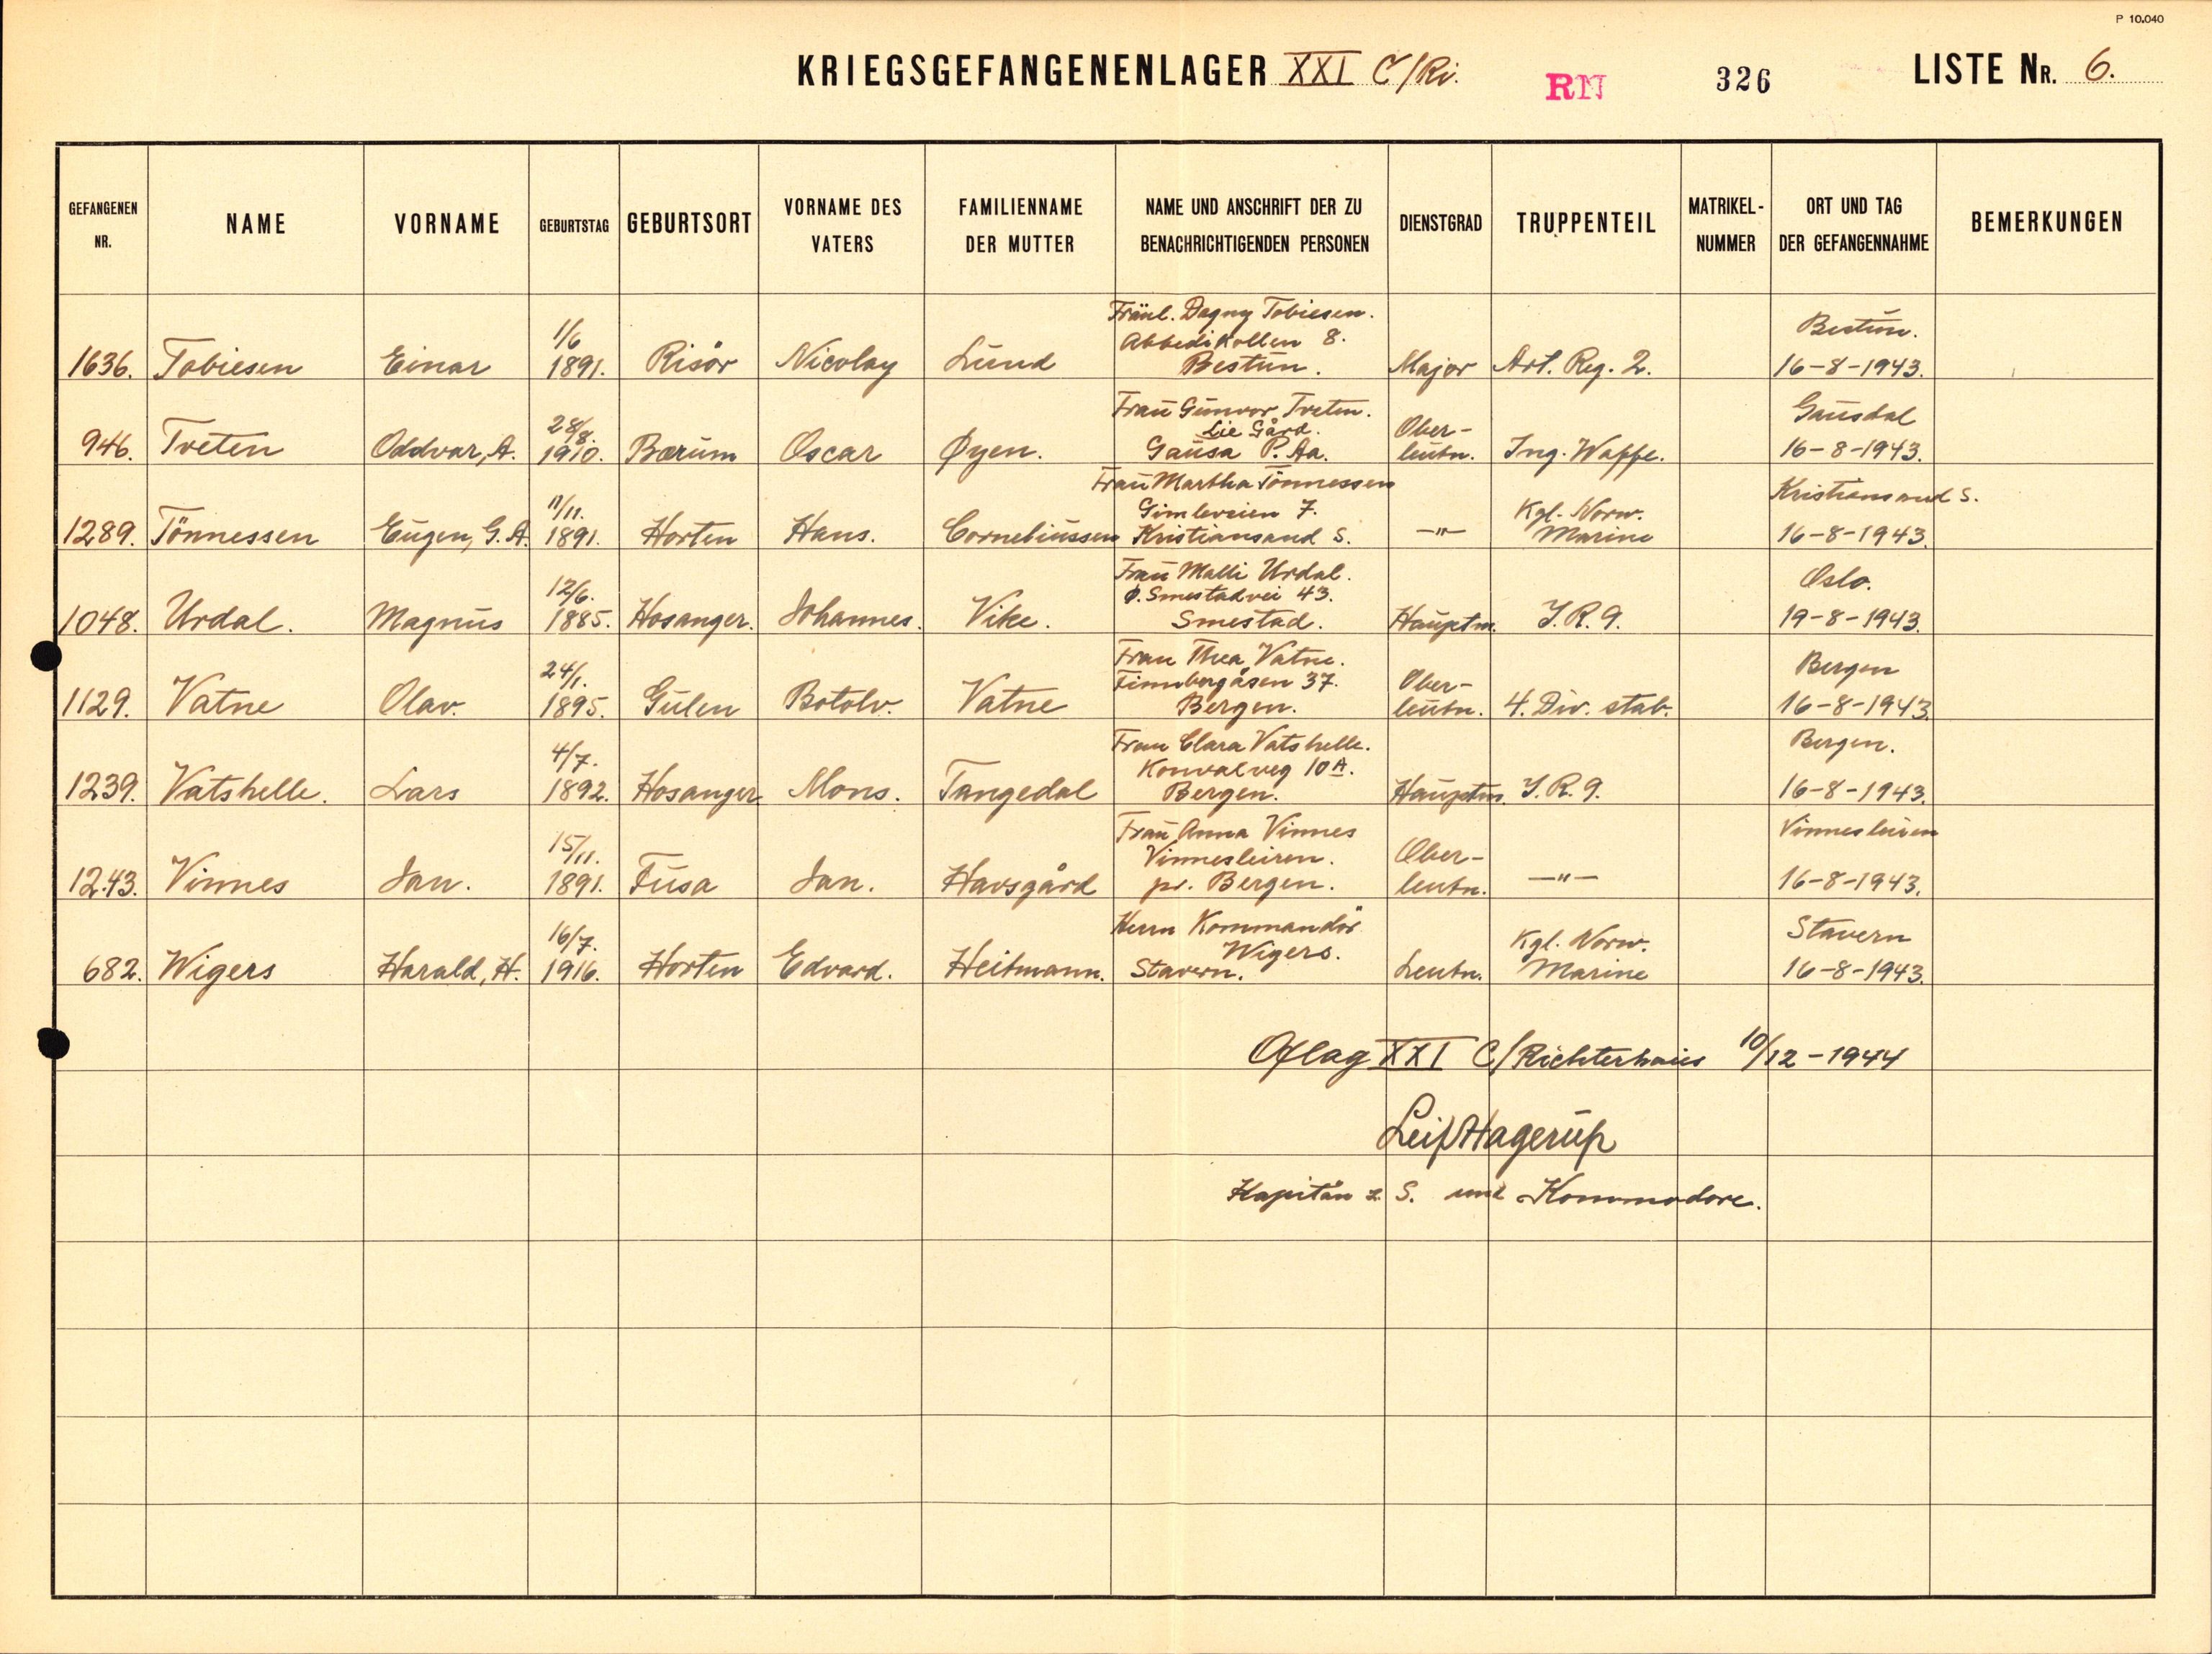 P 10.040
KRIEGSGEFANGENENLAGER XXI C/Ri. RN 326 LISTE NR. 6.
GEFANGENEN NR. NAME VORNAME GEBURTSTAG GEBURTSORT VORNAME DES VATERS FAMILIENNAME DER MUTTER NAME UND ANSCHRIFT DER ZU BENACHRICHTIGENDEN PERSONEN DIENSTGRAD TRUPPENTEIL MATRIKEL-NUMMER ORT UND TAG DER GEFANGENNAHME BEMERKUNGEN
1636. Tobiesen Einar 1/6 1891. Risör Nicolay Lund Fräul. Dagny Tobiesen. Abbedikollen 8. Bestun. Major Art. Reg. 2. Bestun. 16-8-1943.
946. Tveten Oddvar, A. 28/8. 1910. Bærum Oscar Øyen. Frau Gunvor Tveten. Lie Gård. Gausa P. Aa. Ober-leutn. Ing. Waffe. Gausdal 16-8-1943.
1289. Tönnessen Eugen, G.A. 11/11. 1891. Horten Hans. Corneliussen Frau Martha Tönnessen Gimleveien 7. Kristiansand S. —"— Kgl. Norw. Marine Kristiansand S. 16-8-1943.
1048. Urdal. Magnus 12/6. 1885. Hosanger. Johannes. Vike. Frau Malli Urdal. Ø. Smestadvei 43. Smestad. Hauptm. J.R.9. Oslo. 19-8-1943.
1129. Vatne Olav. 24/1. 1895. Gulen Botolv. Vatne Frau Thea Vatne. Finnbergåsen 37. Bergen. Ober-leutn. 4. Div. stab. Bergen 16-8-1943.
1239. Vatshelle. Lars 4/7. 1892. Hosanger Mons. Tangedal Frau Clara Vatshelle. Konvalveg 10A. Bergen. Hauptm. J.R.9. Bergen. 16-8-1943.
1243. Vinnes Jan. 15/11. 1891. Fusa Jan. Havsgård Frau Anna Vinnes Vinnesleiren. pr. Bergen. Ober-leutn. —"— Vinnesleiren 16-8-1943.
682. Wigers Harald, H. 16/7. 1916. Horten Edvard. Heitmann. Herrn Kommandör Wigers. Stavern. Leutn. Kgl. Norw. Marine Stavern 16-8-1943.
Oflag XXI C/Richterhaus 10/12-1944
Leif Hagerup
Kapitän z. S. und Kommodore.